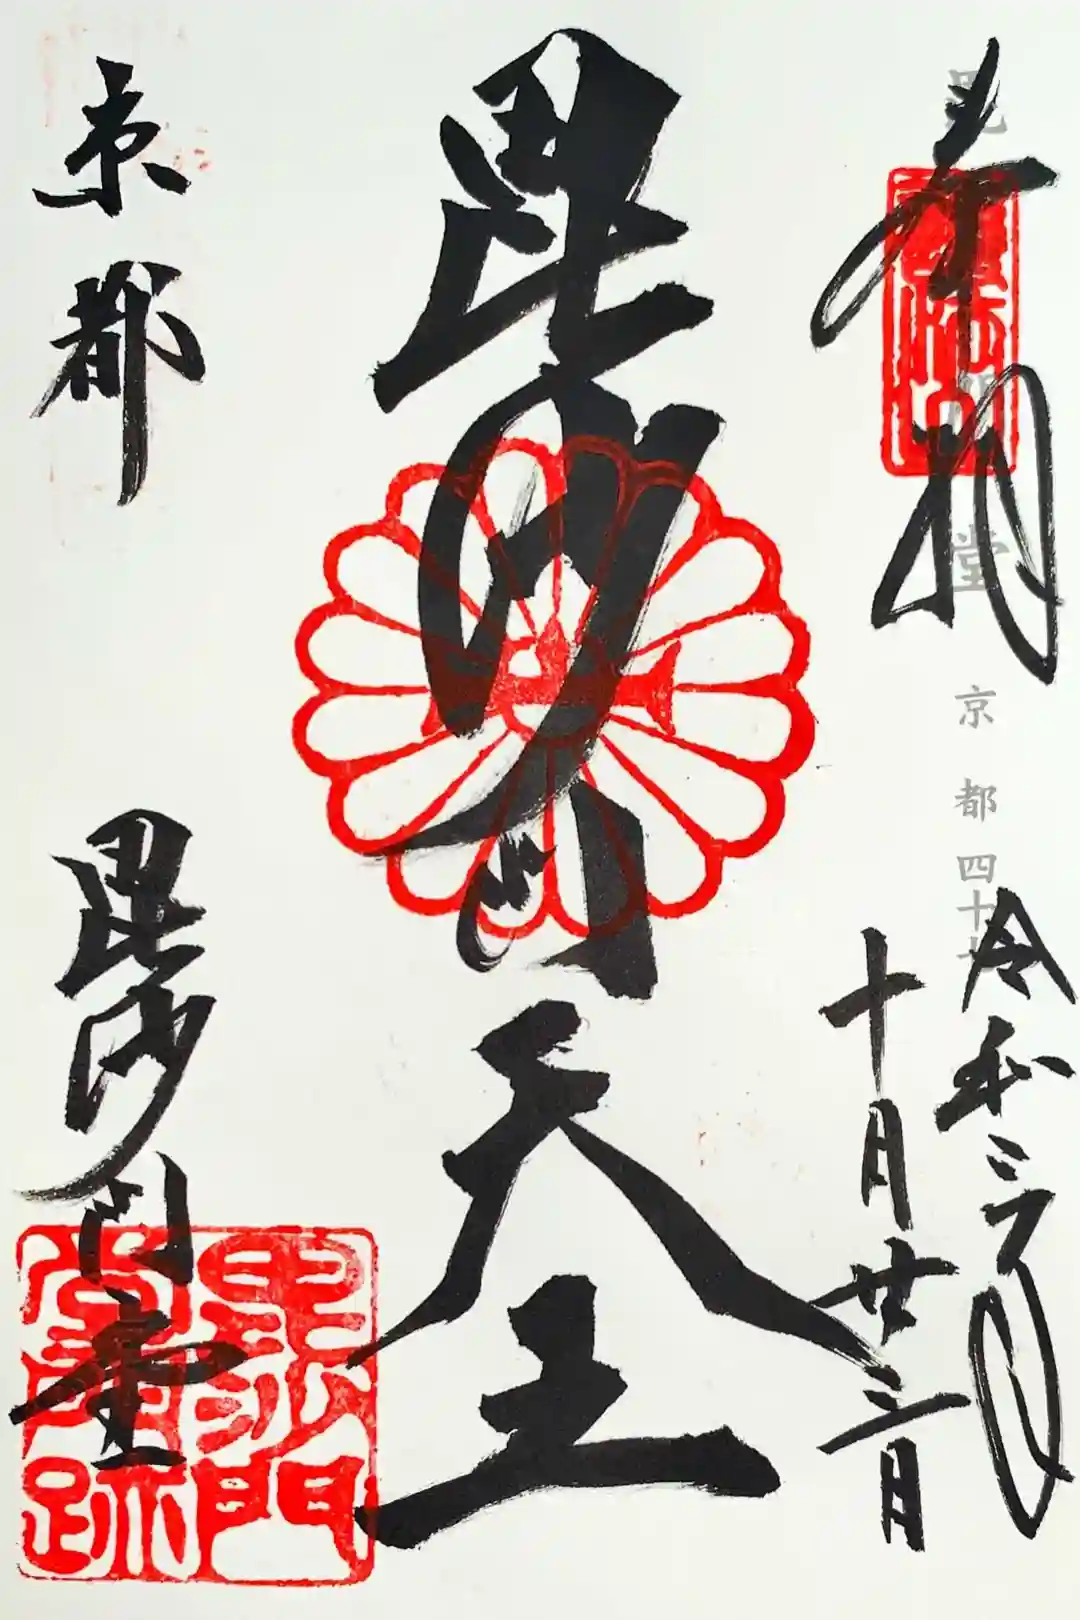 奉拝
令和三年
十月廿三日
毘沙門天王
京都
毘沙門堂
毘沙門
京都四十七